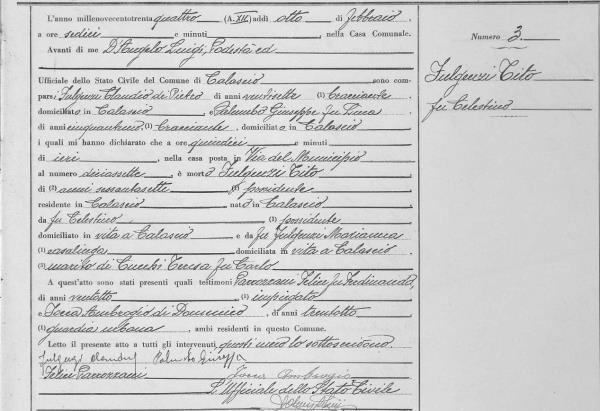 L'anno millenovecentotrenta quattro (A. XII) addì otto di febbraio
a ore sedici e minuti , nella Casa Comunale.
Avanti di me D'Angelo Luigi, Podestà ed
Ufficiale dello Stato Civile del Comune di Calascio sono com-
parsi Fulgenzi Claudio di Pietro di anni ventisette (1) bracciante
domiciliato in Calascio e Palumbo Giuseppe fu
di anni cinquantuno, (1) bracciante, domiciliato in Calascio
i quali mi hanno dichiarato che a ore quindici e minuti
di ieri , nella casa posta in Via del Municipio
al numero diciassette, è morto Fulgenzi Tito
di (2) anni sessantasette (1) possidente
residente in Calascio nato a Calascio
da fu Celestino (1) possidente
domiciliato in vita a Calascio e da fu Fulgenzi Marianna
(1) casalinga domiciliata in vita a Calascio
(3) marito di Cucchi Teresa fu Carlo
A quest'atto sono stati presenti quali testimoni Felice fu Ferdinando,
di anni ventotto (1) impiegato
e Ambrogio di Domenico, di anni trentotto
(1) guardia urbana, ambi residenti in questo Comune.
Letto il presente atto a tutti gli intervenuti, questi meco lo sottoscrivono
Palumbo Giuseppe
Felice
L'Ufficiale dello Stato Civile
Numero 3
Fulgenzi Tito
fu Celestino